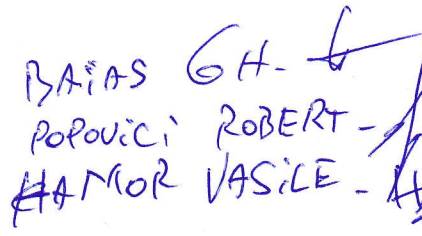 BAiAS GH.
POPOViCi ROBERT -
HAMOR VASiLE -